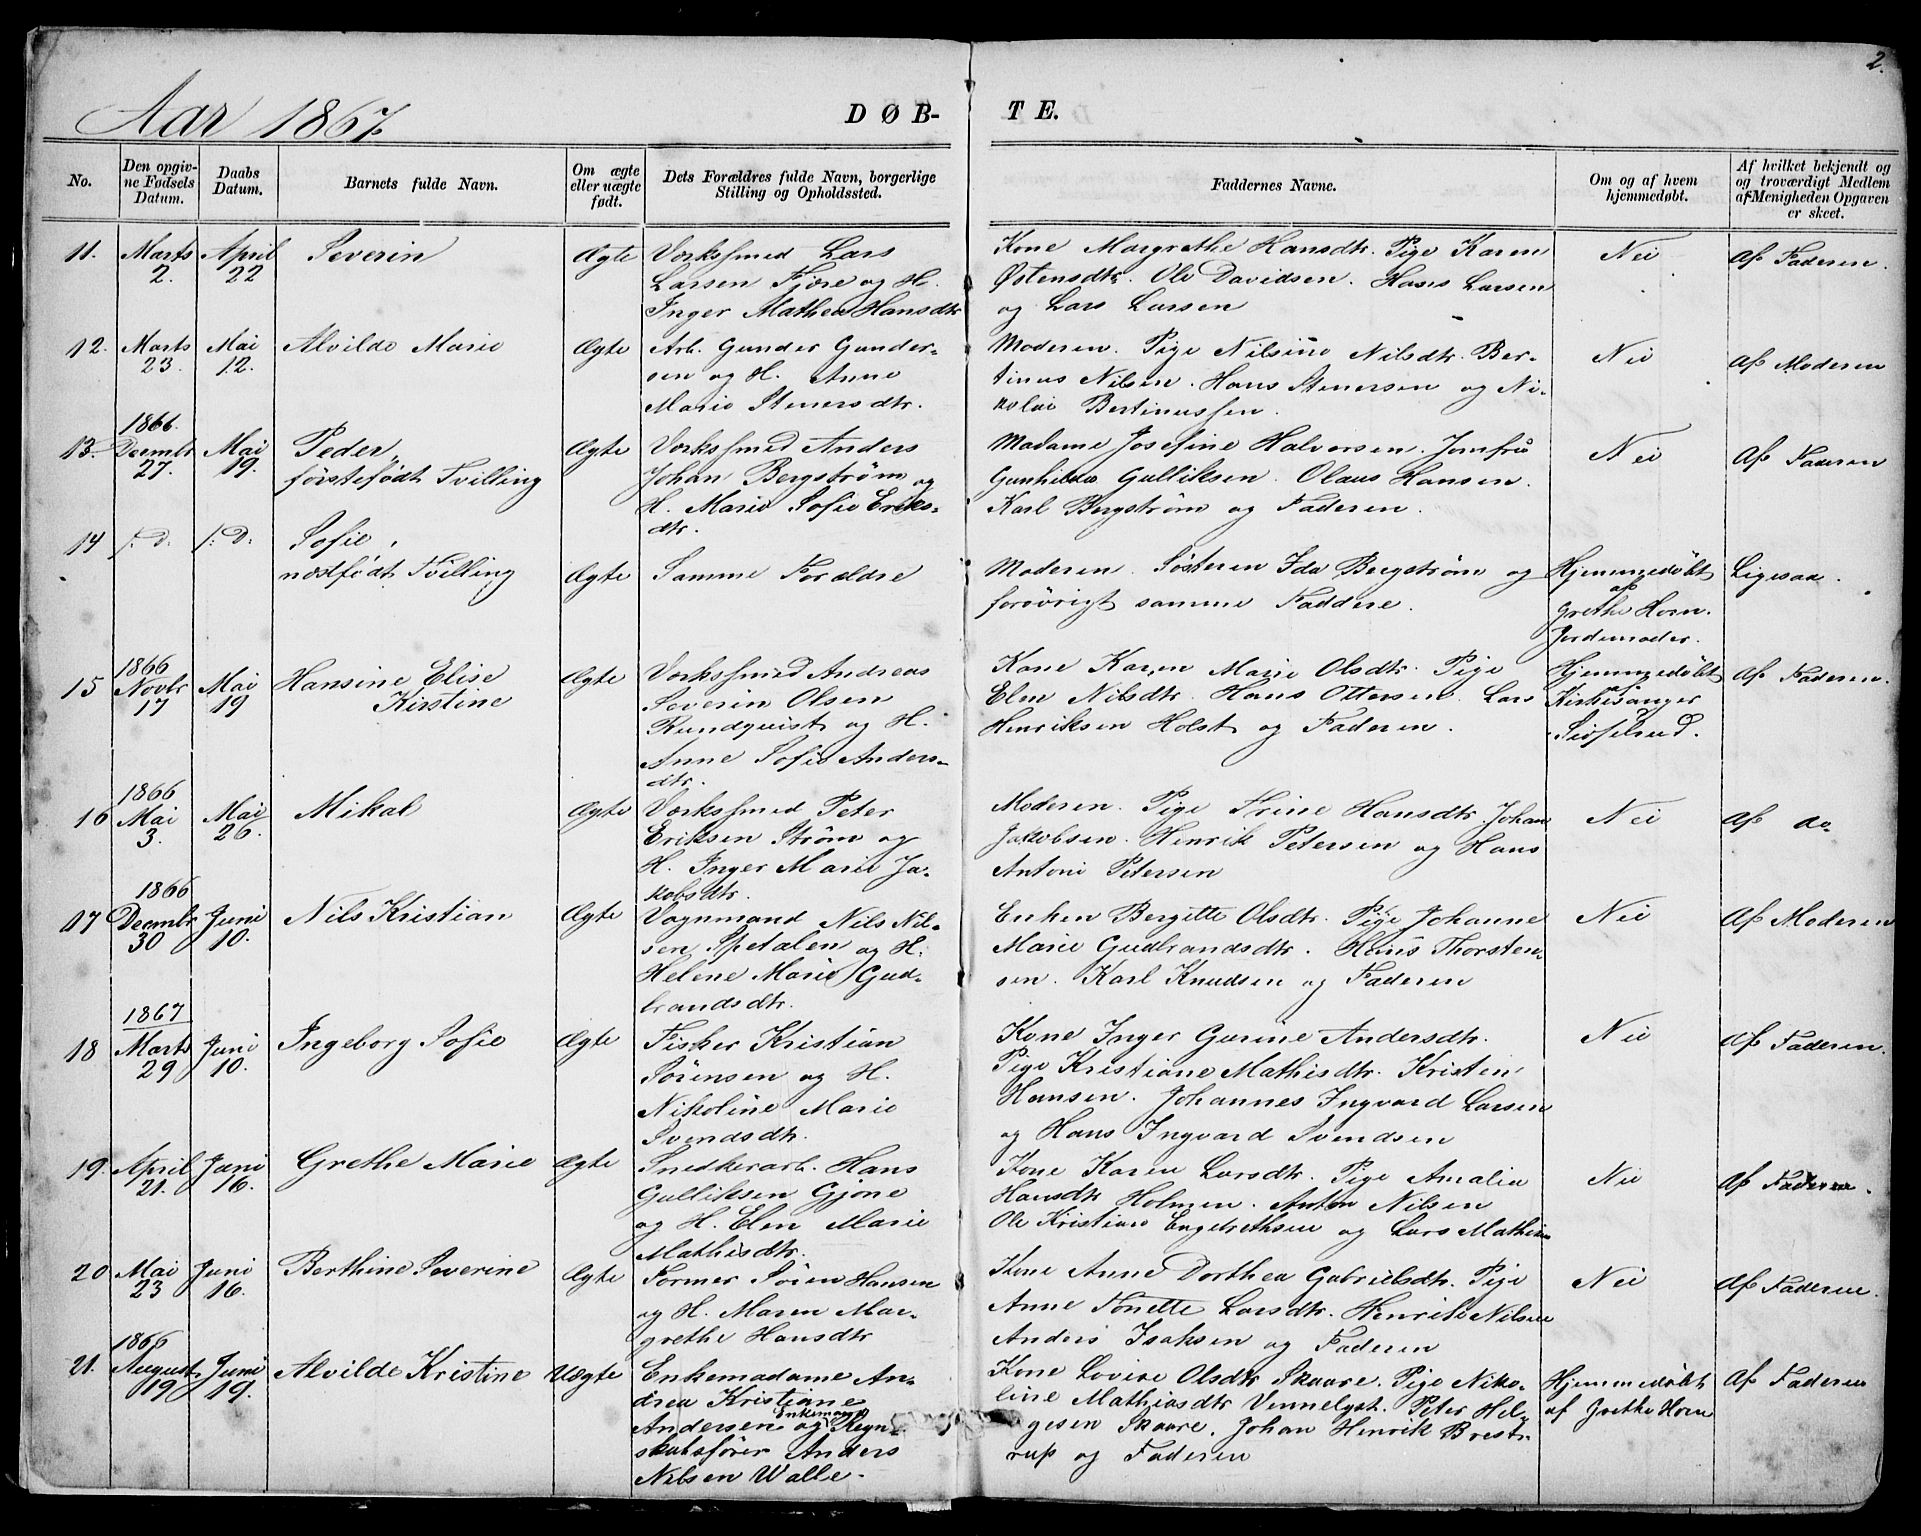 2.
Aar 1867.
DØB- TE.
No.
Den opgiv-
ne Fødsels
Datum.
Daabs
Datum.
Barnets fulde Navn.
Om ægte
eller uægte
født.
Dets Forældres fulde Navn, borgerlige
Stilling og Opholdssted.
Faddernes Navne.
Om og af hvem
hjemmedøbt.
Af hvilket bekjendt og
og troværdigt Medlem
af Menigheden Opgaven
er skeet.
11. Marts April Severin Ægte Værkssmed Lars
2. 22
Larsen Fjære og H.
Inger Mathea Hansdtr
Kone Margrethe Hansdtr. Pige Karen
Østensdtr. Ole Davidsen. Hans Larsen
og Lars Larsen
Nei Af Faderen.
12. Marts Mai Alvilde Marie Ægte Arb. Gunder Gunder-
23. 12.
sen og H. Anne
Marie Stenersdtr.
Moderen. Pige Nilsine Nilsdtr. Ber-
tinus Nilsen. Hans Stenersen og Ni-
kolai Bertinussen.
Nei Af Moderen
1866.
13. Decembr Mai Peder, Ægte Værkssmed Anders
27. 19. førstefødt Tvilling
Johan Bergstrøm og
H. Marie Sofie Eriks-
dtr.
Madame Josefine Halvorsen. Jomfru
Gunhilda Gulliksen. Olaus Hansen.
Karl Bergstrøm og Faderen.
Nei Af Faderen
14 s. D. s. D. Sofie,
næstfødt Tvilling Ægte Samme Forældre
Moderen. Søsteren Ida Bergstrøm og
forøvrigt samme Faddere.
Hjemmedøbt
af
Grethe Horn.
Jordemoder.
Ligesaa.
1866
15 Novbr Mai Hansine Elise Ægte Værkssmed Andreas
17 19 Kirstine
Severin Olsen
Rundquist og H.
Anne Sofie Anders-
dtr.
Kone Karen Marie Olsdtr. Pige
Elen Nilsdtr. Hans Ottersen. Lars
Henriksen Holst og Faderen.
Hjemmedøbt
af
Kirkesanger
Af Faderen.
1866
16 Mai Mai Mikal Ægte Værkssmed Peter
3. 26.
Eriksen Strøm og
H. Inger Marie Ja-
kobsdtr.
Moderen. Pige Trine Hansdtr. Johan
Jakobsen. Henrik Petersen og Hans
Antoni Petersen
Nei Af do-
1866
17 Decembr Juni Nils Kristian Ægte Vognmand Nils Nil-
30 10.
sen Spetalen og H.
Helene Marie Gud-
brandsdtr.
Enken Bergitte Olsdtr. Pige Johanne
Marie Gudbrandsdtr. Hans Thorsten-
sen. Karl Knudsen og Faderen
Nei Af Moderen
1867
18 Marts Juni Ingeborg Sofie Ægte Fisker Kristian
29 10.
Sørensen og H.
Nikoline Marie
Svendsdtr.
Kone Inger Gurine Andersdtr.
Pige Kristiane Mathisdtr. Kristen
Hansen. Johannes Ingvard Larsen
og Hans Ingvard Svendsen
Nei Af Faderen.
19. April Juni Grethe Marie Ægte Snedkerarb. Hans
21. 16.
Gulliksen Gjøne
og H. Elen Marie
Mathisdtr.
Kone Karen Larsdtr. Pige Amalia
Hansdtr Holmen. Anton Nilsen
Ole Kristian Engebrethsen og Lars Mathisen
Nei Af Faderen.
20 Mai Juni Berthine Severine Ægte Former Søren Hansen
23 16.
og H. Maren Mar-
grethe Hansdtr
Kone Anne Dorthea Gabrielsdtr. Pige
Anne Tonette Larsdtr. Henrik Nilsen
Anders Isaksen og Faderen
Nei Af Faderen.
1866
21. August Juni Alvilde Kristine Uægte Enkemadame An-
19 19.
drea Kristiane
Andersen og Enkemand Regn-
skabsfører Anders
Nilsen Walle.
Kone Lovise Olsdtr Skaare. Pige Niko-
line Mathiasdtr Vennelyst. Peter Hel-
gesen Skaare. Johan Henrik Brest-
rup og Faderen
Hjemmedøbt
af Grethe Horn
Af Faderen